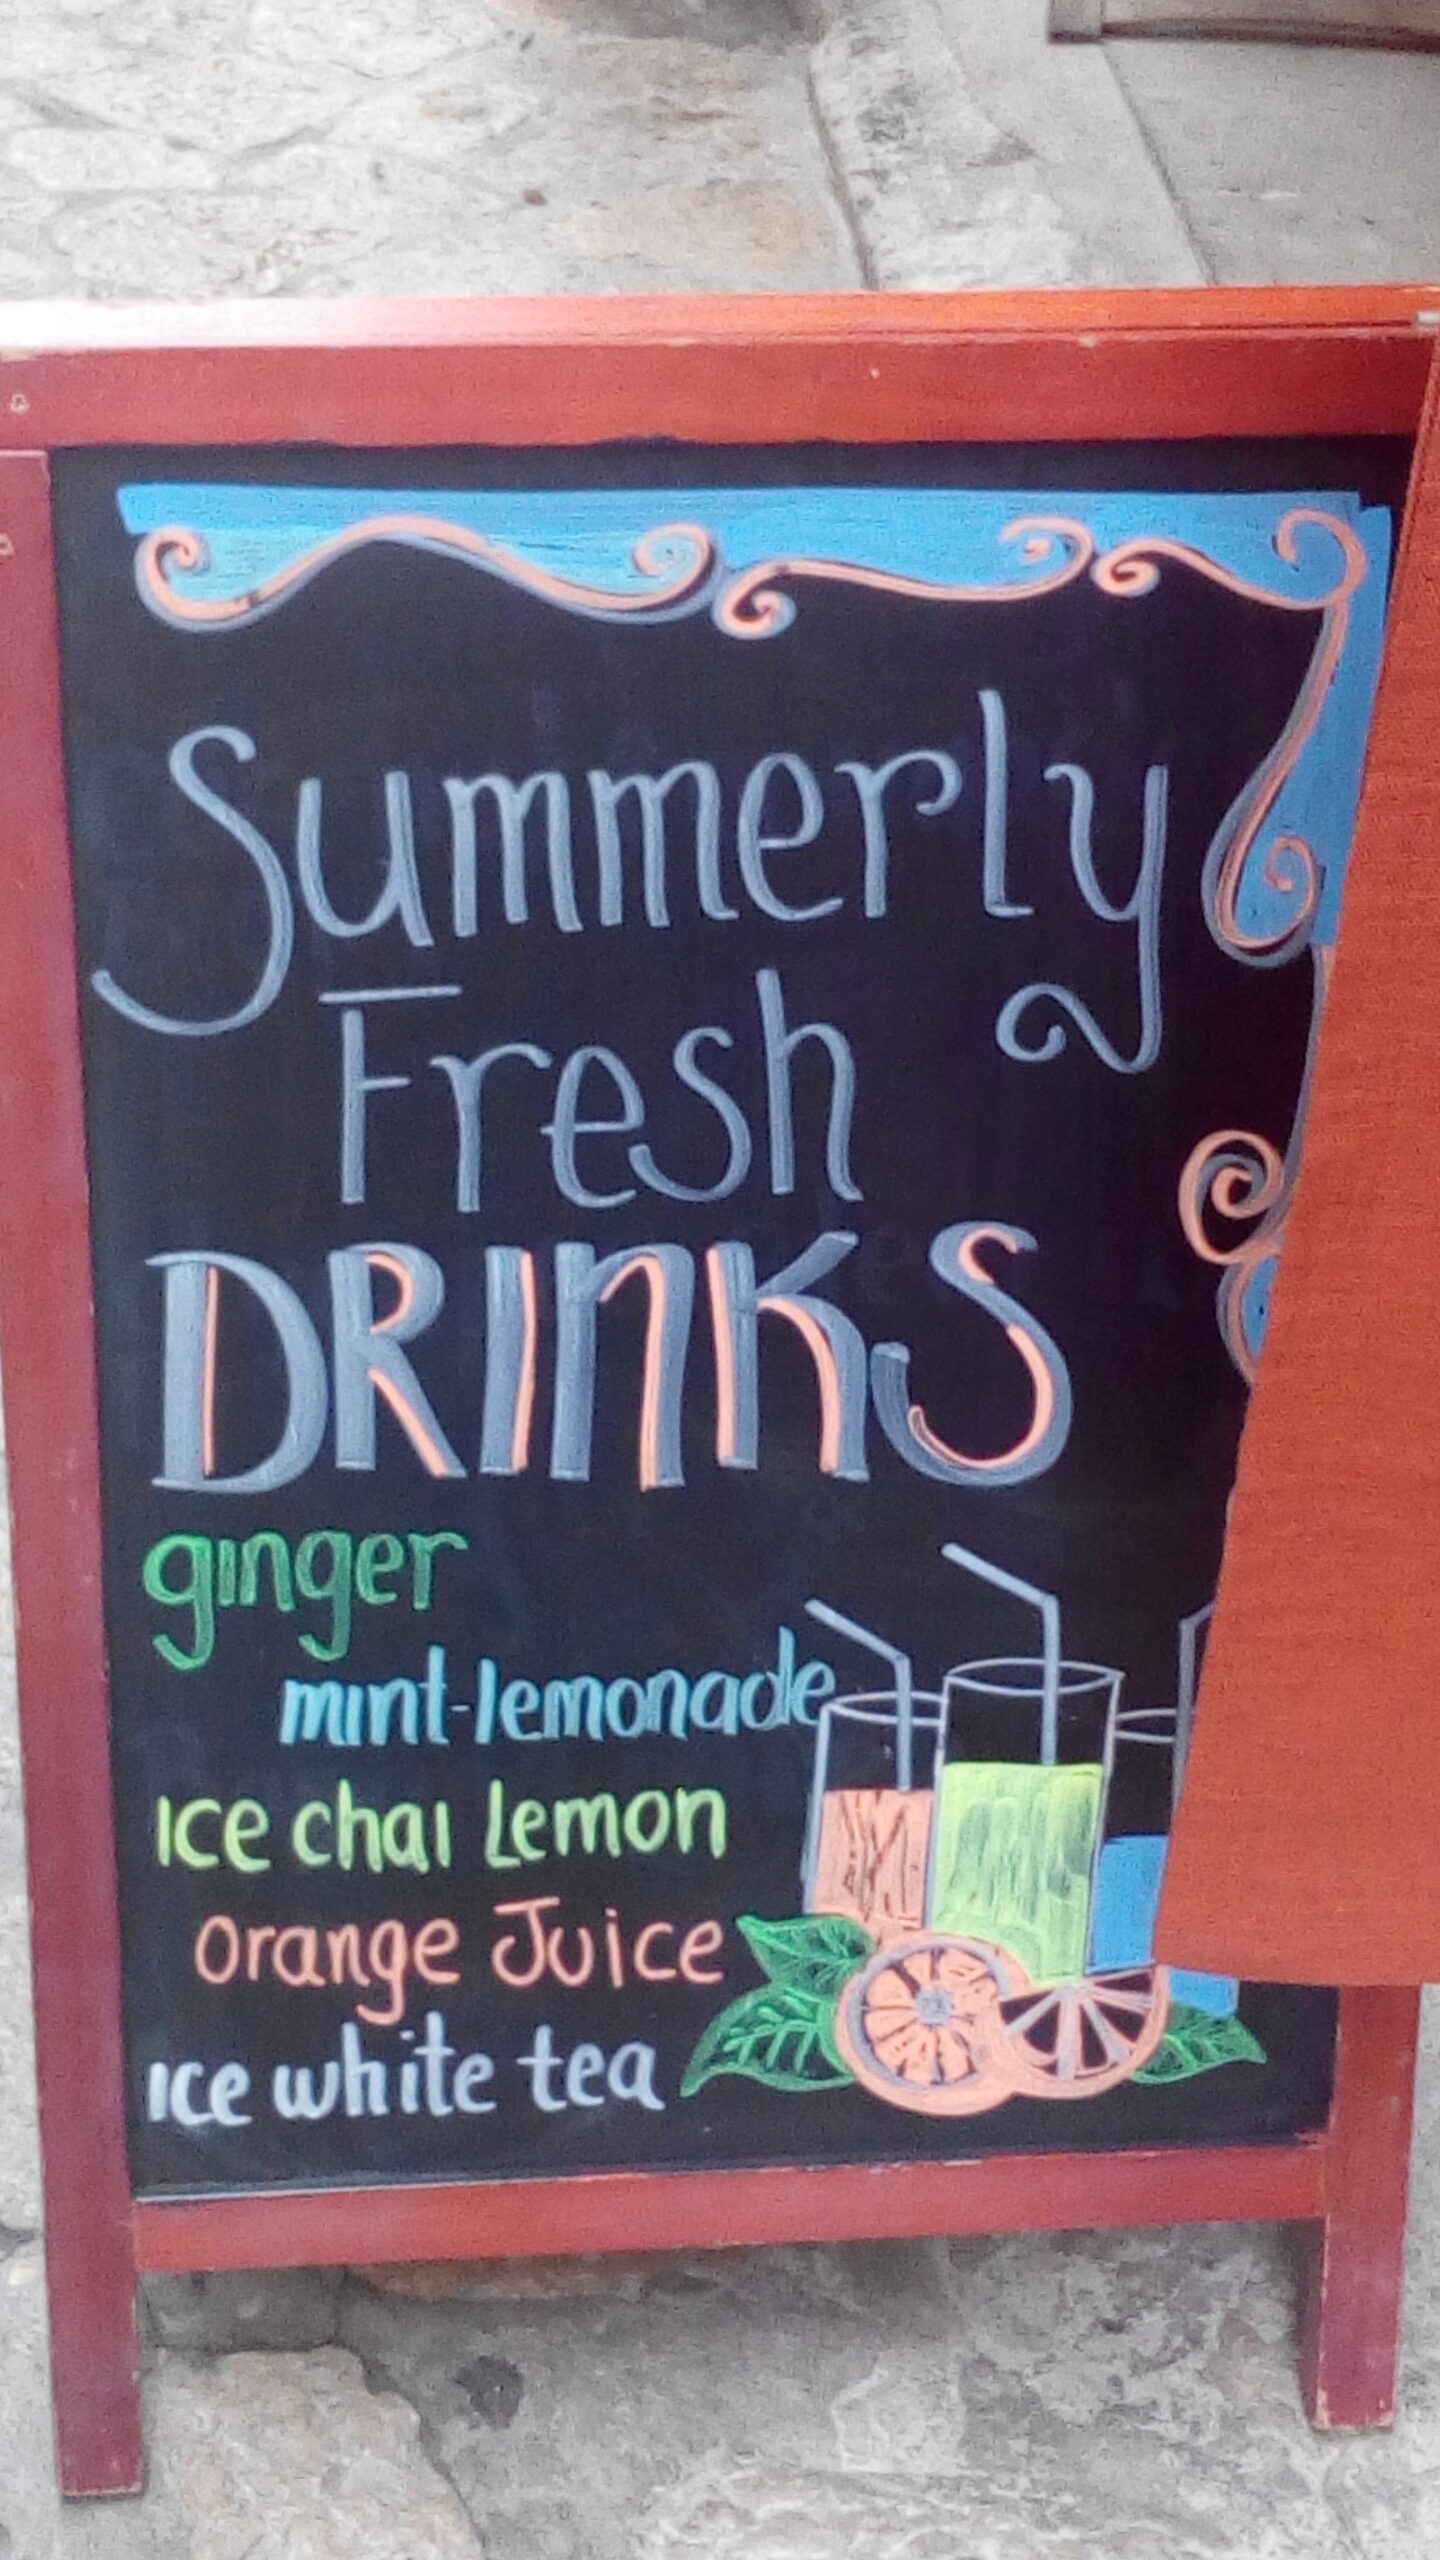 Summerly
Fresh
DRINKS
ginger
mint-lemonade
Ice chai Lemon
Orange Juice
Ice white tea